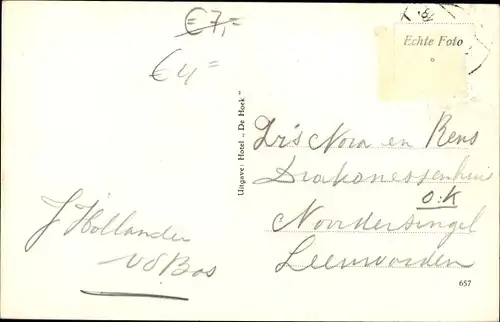 € 7,=
€ 4 =
Echte Foto
Uitgave: Hotel „De Hoek”
Zr's Nora en Rens
Diakonessenhuis
O.K
Noordersingel
Leeuwarden
J Hollander
vd Bos
657